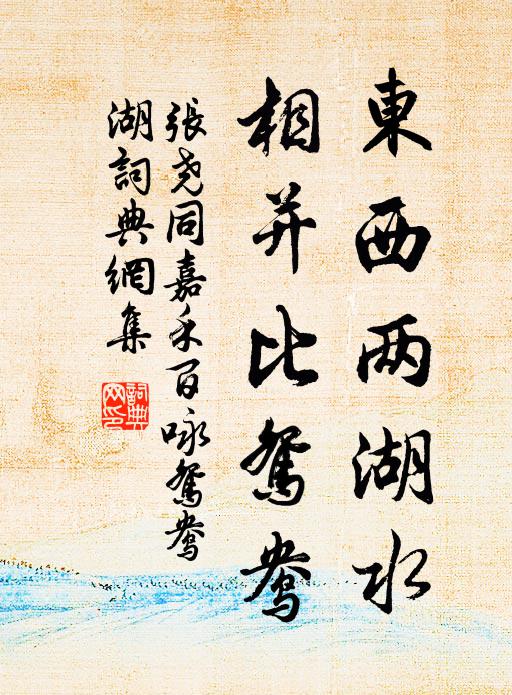 東西两湖水
相并比鴛鴦
張尧同嘉禾百咏鴛鴦
湖詞典網集
詞典
网印